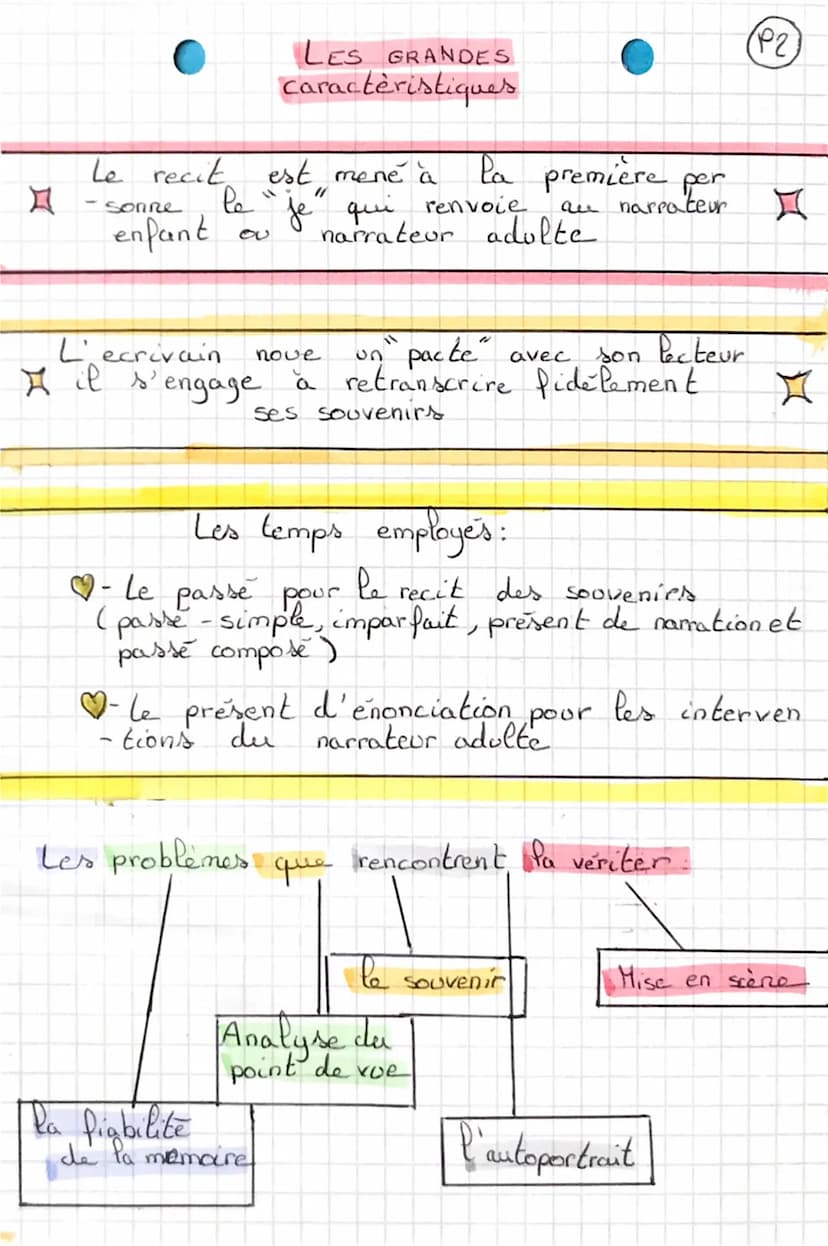 P2
LES GRANDES
caractèristiques
Le recit est mené à la première per
-sonne le "je" qui renvoie au narrateur
enfant ou narrateur adulte
L'ecrivain noue un "pacte" avec son lecteur
il s'engage à retranscrire fidélement
ses souvenirs
Les temps employés :
- Le passé pour le recit des souvenirs
(passé-simple, imparfait, présent de narration et
passé composé)
- Le présent d'énonciation pour les interven
-tions du narrateur adulte
Les problèmes que rencontrent la vériter :
le souvenir
Mise en scène
Analyse du
point de vue
la fiabilité
de la memoire
l'autoportrait